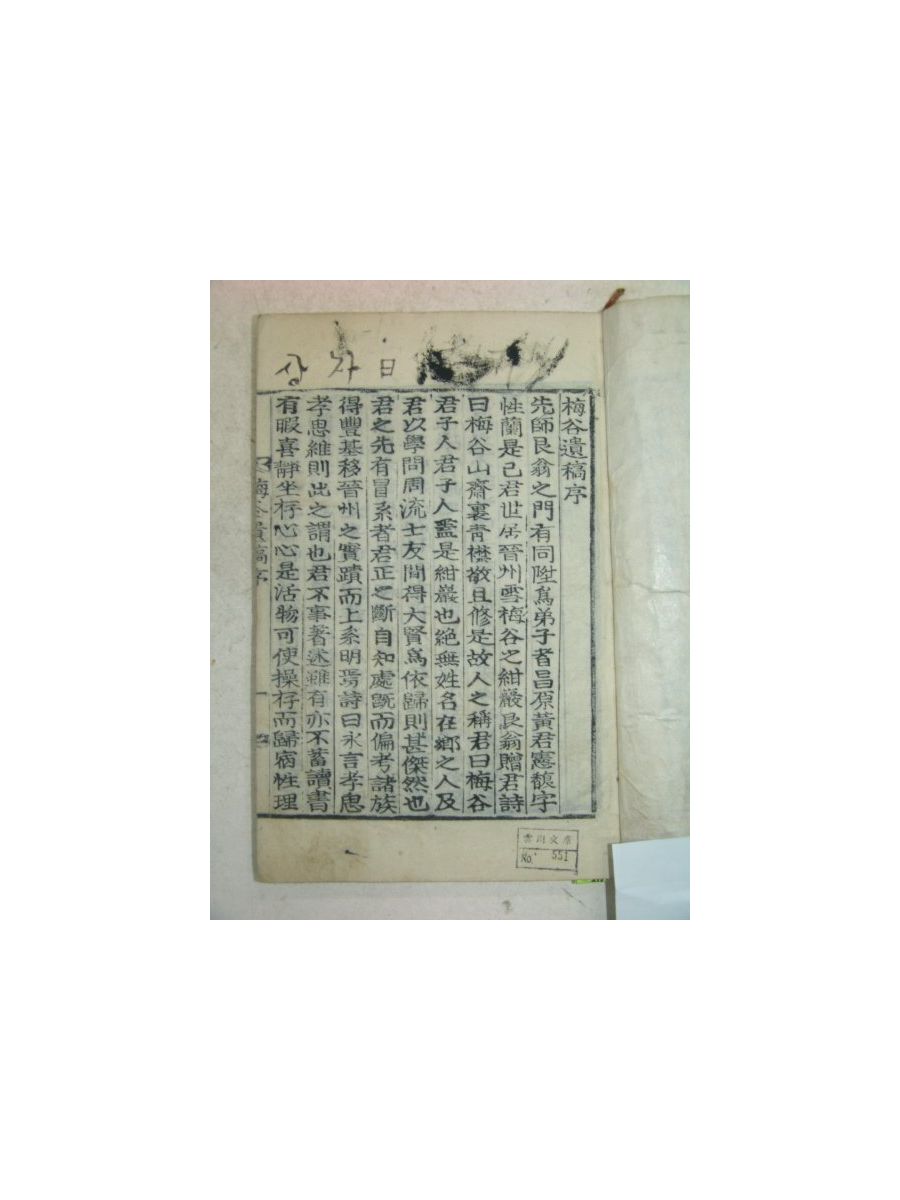 상 자 日
梅谷遺稿序
先師艮翁之門有同陞爲弟子者昌原黃君憲馥字
性蘭是已君世居晉州雲梅谷之紺巖艮翁贈君詩
曰梅谷山齋裏靑襟敬且修是故人之稱君曰梅谷
君子人君子人盖是紺巖也絶無姓名在鄕之人及
君以學問周流士友間得大賢爲依歸則甚傑然也
君之先有冒系者君正之斷自知處旣而偏考諸族
得豐基移晉州之實蹟而上系明焉詩曰永言孝思
孝思維則此之謂也君不事著述雖有亦不蓄讀書
有暇喜靜坐存心心是活物可使操存而歸宿性理
梅谷遺稿序
一
雲川文庫
No. 551